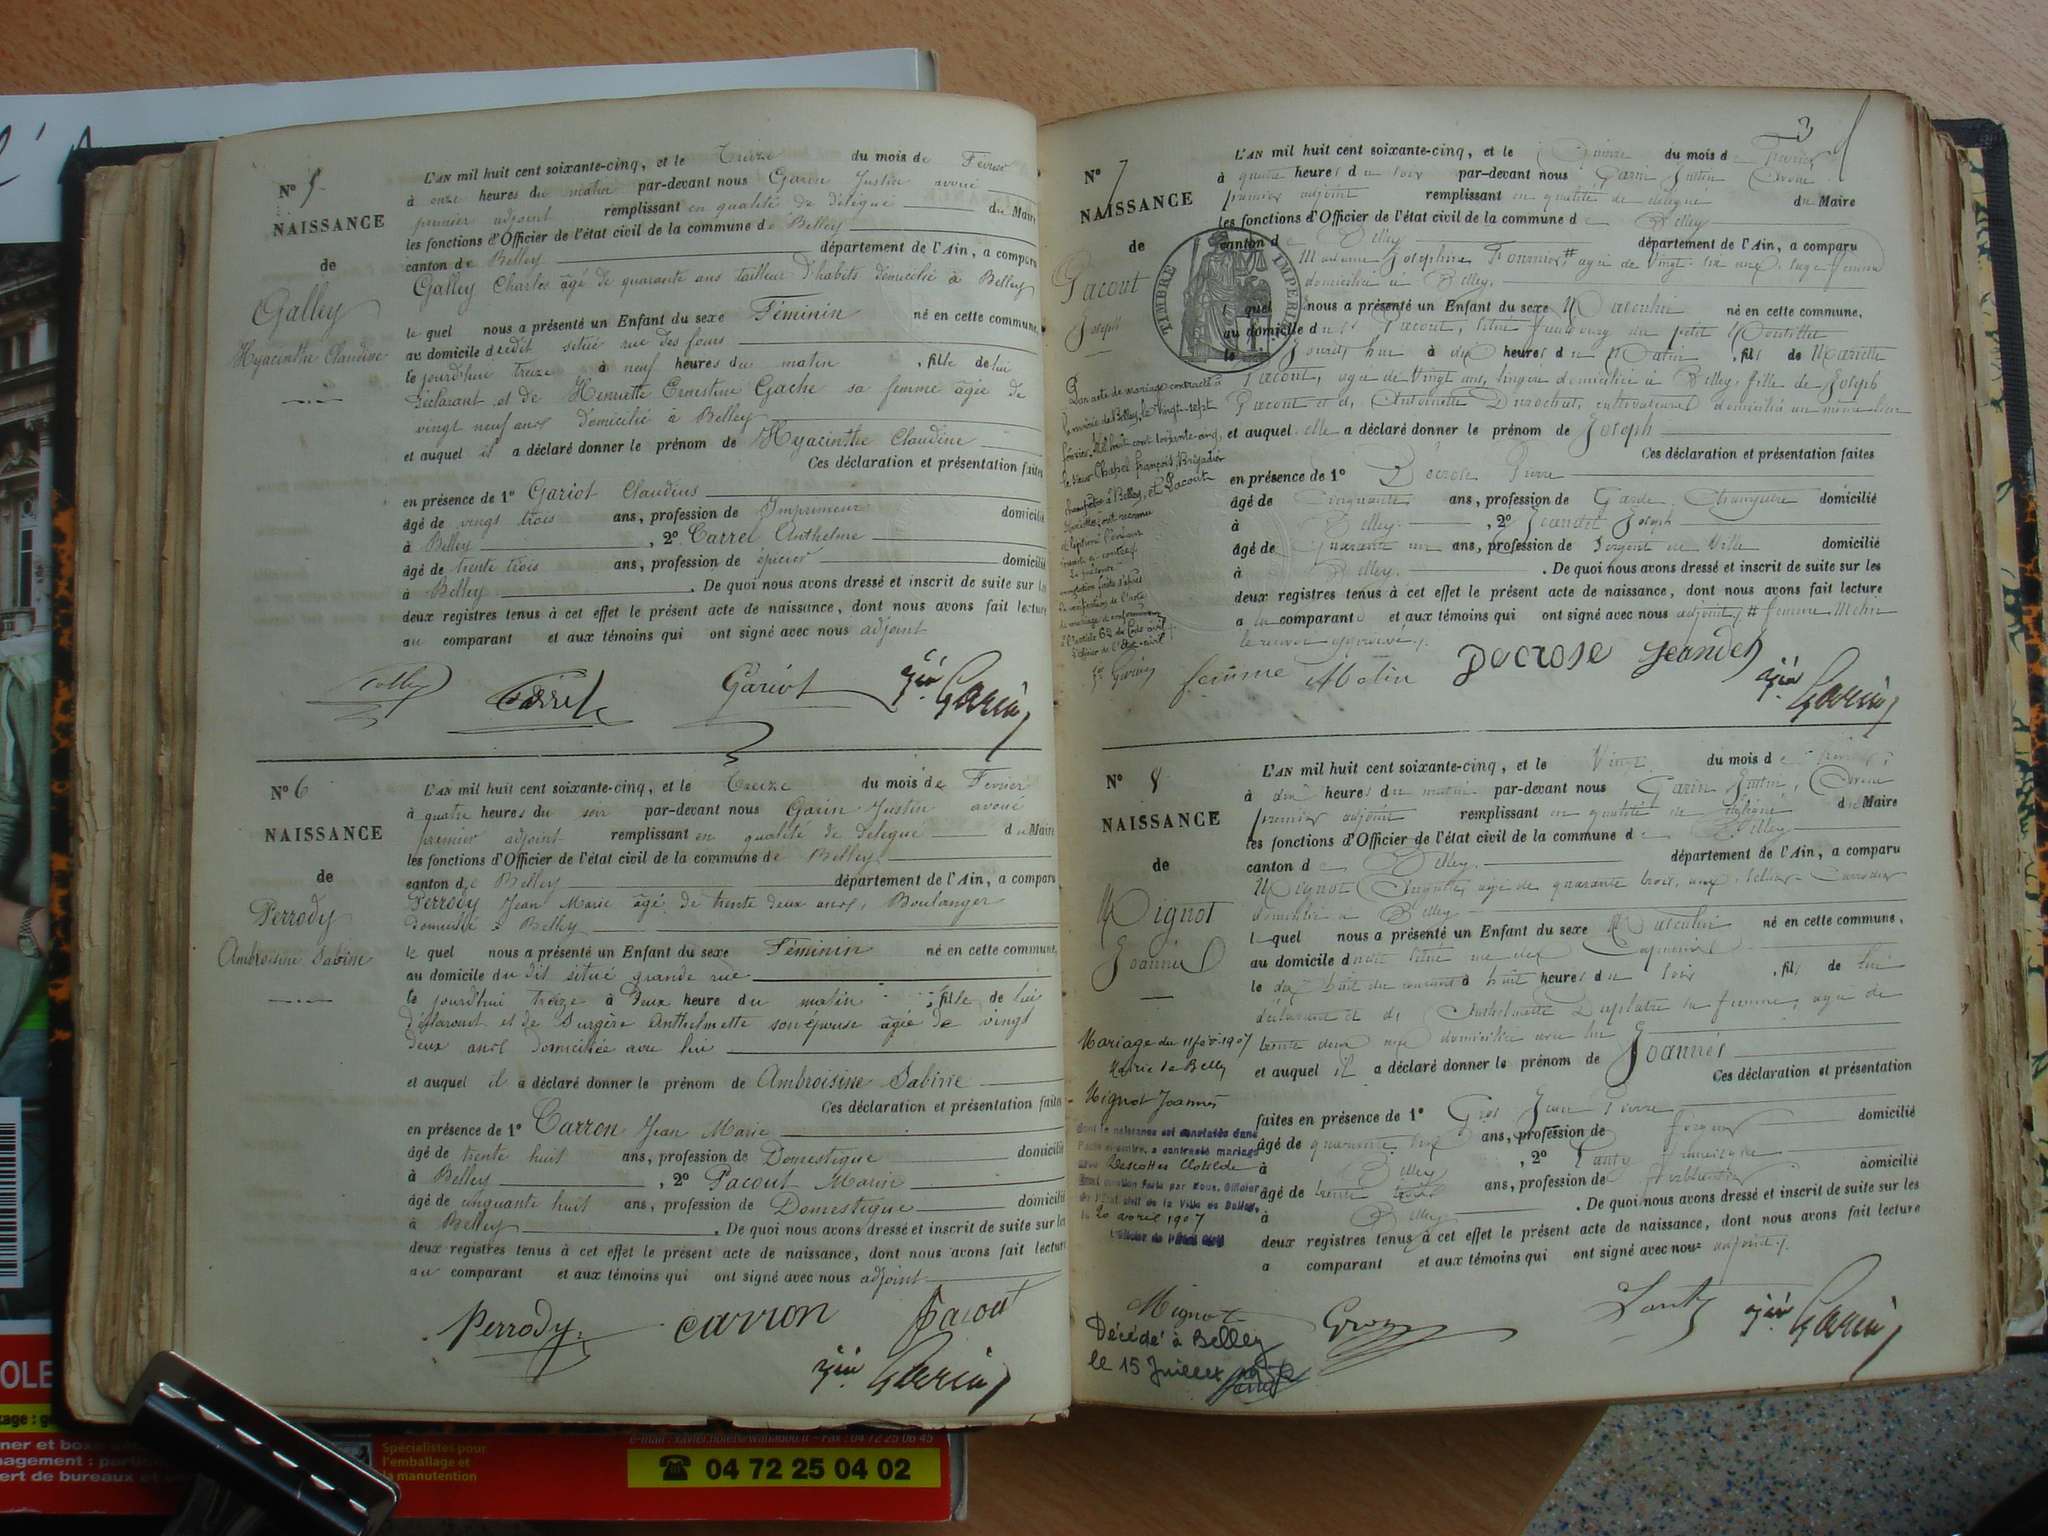 N° 5
NAISSANCE
de
Galley
Hyacinthe Claudine
L'AN mil huit cent soixante-cinq, et le Treize du mois de Février
à onze heures du matin par-devant nous Garin Justin avoué
premier adjoint remplissant en qualité de délégué du Maire
les fonctions d'Officier de l'état civil de la commune de Belley
canton de Belley département de l'Ain, a comparu
Galley Charles âgé de quarante ans tailleur d'habits domicilié à Belley
le quel nous a présenté un Enfant du sexe Féminin né en cette commune,
au domicile dudit situé rue des fours
le jourd'hui treize à neuf heures du matin, fille de lui
déclarant et de Henriette Ernestine Gache sa femme âgée de
vingt neuf ans domicilié à Belley
et auquel il a déclaré donner le prénom de Hyacinthe Claudine
Ces déclaration et présentation faites
en présence de 1° Gariot Claudius
âgé de vingt trois ans, profession de Imprimeur domicilié
à Belley, 2° Carrel Anthelme
âgé de trente trois ans, profession de épicier domicilié
à Belley. De quoi nous avons dressé et inscrit de suite sur les
deux registres tenus à cet effet le présent acte de naissance, dont nous avons fait lecture
au comparant et aux témoins qui ont signé avec nous adjoint
Galley Carrel Gariot Jin Garin
N° 6
NAISSANCE
de
Perrody
Ambroisine Sabine
L'AN mil huit cent soixante-cinq, et le Treize du mois de Février
à quatre heures du soir par-devant nous Garin Justin avoué
premier adjoint remplissant en qualité de délégué du Maire
les fonctions d'Officier de l'état civil de la commune de Belley
canton de Belley département de l'Ain, a comparu
Perrody Jean Marie âgé de trente deux ans, Boulanger
domicilié à Belley
le quel nous a présenté un Enfant du sexe Féminin né en cette commune,
au domicile du dit situé grande rue
le jourd'hui treize à deux heure du matin, fille de lui
déclarant et de Surgère Anthelmette son épouse âgée de vingt
deux ans domiciliée avec lui
et auquel il a déclaré donner le prénom de Ambroisine Sabine
Ces déclaration et présentation faites
en présence de 1° Carron Jean Marie
âgé de trente huit ans, profession de Domestique domicilié
à Belley, 2° Pacout Marin
âgé de cinquante huit ans, profession de Domestique domicilié
à Belley. De quoi nous avons dressé et inscrit de suite sur les
deux registres tenus à cet effet le présent acte de naissance, dont nous avons fait lecture
au comparant et aux témoins qui ont signé avec nous adjoint
Perrody Carron Pacout
Jin Garin
3
N° 7
NAISSANCE
de
Pacout
Joseph
TIMBRE IMPERIAL
L'AN mil huit cent soixante-cinq, et le Quinze du mois de Février
à quatre heures du soir par-devant nous Garin Justin Avoué
premier adjoint remplissant en qualité de délégué du Maire
les fonctions d'Officier de l'état civil de la commune de Belley
canton de Belley département de l'Ain, a comparu
Madame Joséphine Fournier # agée de vingt six ans, sage femme
domiciliée à Belley.
l quel nous a présenté un Enfant du sexe Masculin né en cette commune,
au domicile du Sr Pacout, situé faubourg du petit
le Jourd'hui à dix heures du Matin, fils de Mariette
Pacout, agée de Vingt ans, lingère domiciliée à Belley, fille de Joseph
Pacout et d'Antoinette Durochat, cultivateurs domiciliés au même lieu
et auquel elle a déclaré donner le prénom de Joseph
Ces déclaration et présentation faites
en présence de 1° Décrose Pierre
âgé de Cinquante ans, profession de Garde Champêtre domicilié
à Belley, 2° Jeandet Joseph
âgé de Quarante un ans, profession de Sergent de Ville domicilié
à Belley. De quoi nous avons dressé et inscrit de suite sur les
deux registres tenus à cet effet le présent acte de naissance, dont nous avons fait lecture
a la comparante et aux témoins qui ont signé avec nous adjoint # femme Molin
le renvoi approuvé
Par acte de mariage contracté à
la mairie de Belley, le vingt-sept
février, Mil huit cent soixante-cinq,
le sieur Chapel François, Brigadier
à Belley, et Pacout
Mariette, ont reconnu
et légitimé l'enfant
inscrit ci-contre
La présente
faite d'après
de l'acte
de mariage et conformément
à l'article 62 du Code civil
L'officier de l'Etat-civil
Jin Garin
femme Molin Decrose Jeandet Jin Garin
N° 8
NAISSANCE
de
Mignot
Joannès
L'AN mil huit cent soixante-cinq, et le Vingt du mois de Février
à dix heures du matin par-devant nous Garin Justin, Avoué
premier adjoint remplissant en qualité de délégué du Maire
les fonctions d'Officier de l'état civil de la commune de Belley
canton de Belley. département de l'Ain, a comparu
Mignot Auguste, agé de quarante trois ans, sellier-Carrossier
domicilié à Belley
l quel nous a présenté un Enfant du sexe Masculin né en cette commune,
au domicile dudit situé rue des Capucins
le dix huit du courant à huit heures du soir, fils de lui
déclarant et d'Anthelmette Duplatre sa femme, agée de
trente deux ans domiciliée avec lui
et auquel il a déclaré donner le prénom de Joannès
Ces déclaration et présentation
faites en présence de 1° Gros Jean Pierre domicilié
âgé de quarante ans, profession de
à Belley, 2° domicilié
âgé de trente ans, profession de Ferblantier
à Belley. De quoi nous avons dressé et inscrit de suite sur les
deux registres tenus à cet effet le présent acte de naissance, dont nous avons fait lecture
a comparant et aux témoins qui ont signé avec nous adjoint
Mariage du 11 fév. 1907
Mairie de Belley
Mignot Joannès
dont la naissance est constatée dans
l'acte ci-contre, a contracté mariage
avec Descottes Clotilde
mention faite par nous, Officier
de l'Etat civil de la Ville de Belley,
le 20 avril 1907
L'Officier de l'Etat civil
Mignot Gros Jin Garin
Décédé à Belley
le 15 Juillet
Spécialistes pour
l'emballage et
la manutention
04 72 25 04 02